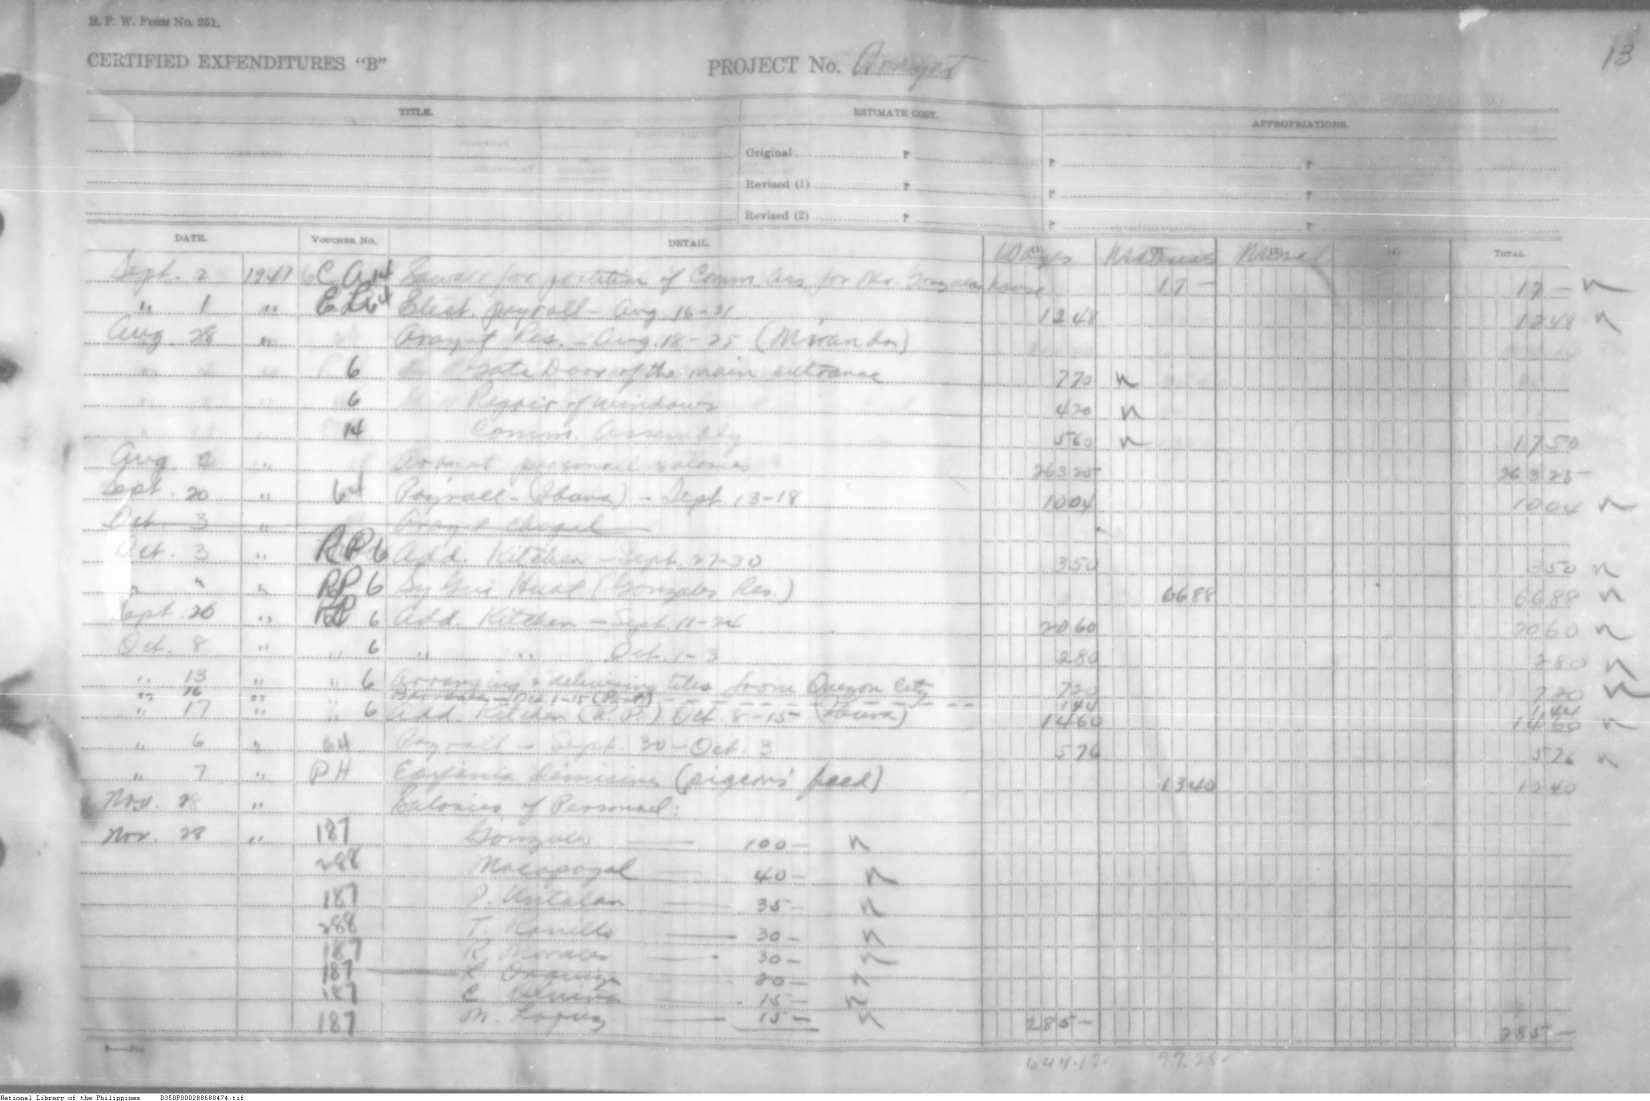 B. P. W. Form No. 251.
13
CERTIFIED EXPENDITURES "B"
PROJECT No. Arayat
TITLE.
ESTIMATE COST.
APPROPRIATIONS.
Original ₱ ₱ ₱
Revised (1) ₱ ₱ ₱
Revised (2) ₱ ₱ ₱
DATE. VOUCHER No. DETAIL. (1) Wages (2) Materials (3) (4) TOTAL
Sept. 2 1947 for partition of Comm. for Mr. Gonzales house 17 — 17 —
" 1 " 64 Elect. payroll — Aug 16-31 12 48 12 48
Aug. 28 " Arayat Res. — Aug. 18-25 (Miranda)
6 Door of the main entrance 7 70
6 Repair of windows 4 20
14 Comm. Assembly 5 60 17 50
Aug. " Arayat personnel salaries 263 25 263 25
Sept. 20 " 64 Payroll — — Sept. 13-18 10 04 10 04
Oct. 3 " Arayat chapel
Oct. 3 " RP 6 Add. Kitchen — Sept. 27-30 3 50 3 50
" " " RP 6 Sy Gui Huat (Gonzales Res.) 66 88 66 88
Sept. 26 " RP 6 Add. Kitchen — Sept. 11-24 20 60 20 60
Oct. 8 " " 6 " " Oct. 1-3 2 80 2 80
" 13 " " 6 Arranging & delivering tiles from Quezon City 7 20 7 20
" 16 " — Oct 1-15 1 44 1 44
" 17 " " 6 Add. Kitchen (R.P.) Oct. 8-15 14 60 14 60
" 6 " 64 Payroll — Sept. 30 — Oct. 3 5 76 5 76
" 7 " PH (pigeons' feed) 13 40 13 40
Nov. 28 " Salaries of Personnel:
Nov. 28 " 187 Gonzales 100 —
288 Macapagal 40 —
187 35 —
288 T. 30 —
187 R. Morales 30 —
187 20 —
187 C. 15 —
187 M. Lopez 15 — 285 — 285 —
644.17 97.28
National Library of the Philippines D350P000288680474.tif